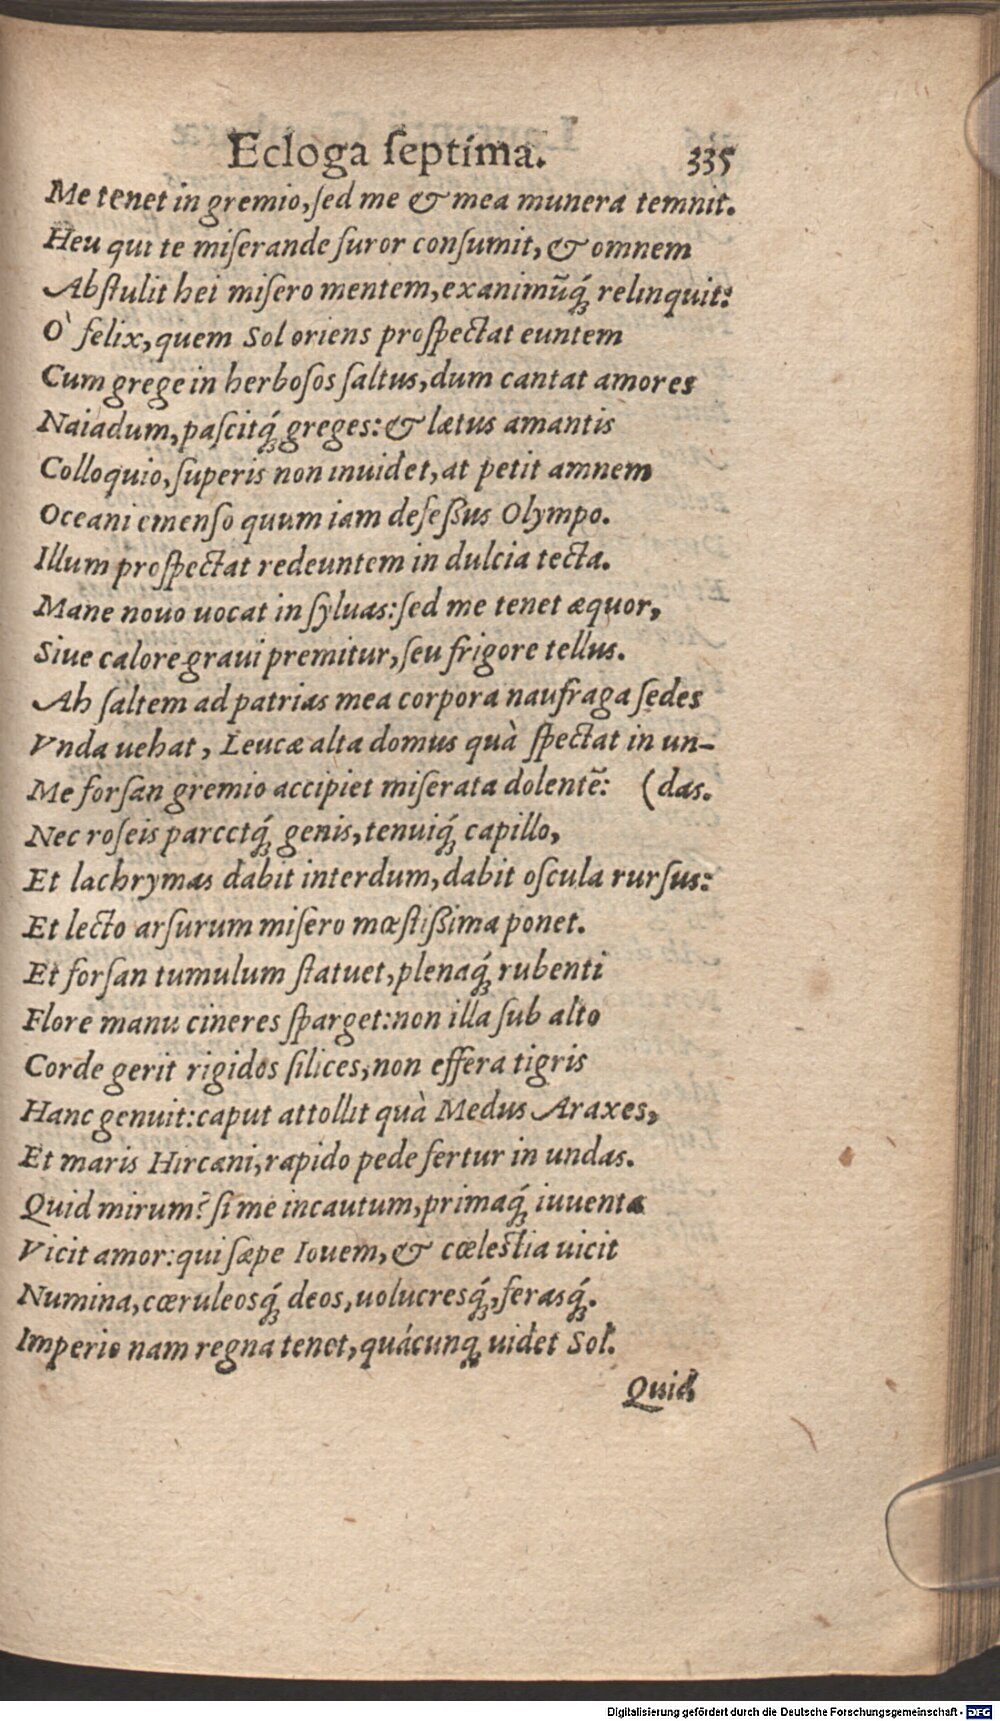 Ecloga ſeptima. 335
Me tenet in gremio, ſed me & mea munera temnit.
Heu qui te miſerande furor conſumit, & omnem
Abſtulit hei miſero mentem, exanimũq́; relinquit:
O` felix, quem Sol oriens proſpectat euntem
Cum grege in herboſos ſaltus, dum cantat amores
Naiadum, paſcitq́; greges: & lætus amantis
Colloquio, ſuperis non inuidet, at petit amnem
Oceani emenſo quum iam defeſſus Olympo.
Illum proſpectat redeuntem in dulcia tecta.
Mane nouo uocat in ſyluas: ſed me tenet æquor,
Siue calore graui premitur, ſeu frigore tellus.
Ah ſaltem ad patrias mea corpora naufraga ſedes
Vnda uehat, Leucæ alta domus quà ſpectat in un-
Me forſan gremio accipiet miſerata dolentẽ: (das.
Nec roſeis parcetq́; genis, tenuiq́; capillo,
Et lachrymas dabit interdum, dabit oſcula rurſus:
Et lecto arſurum miſero mœſtiſſima ponet.
Et forſan tumulum ſtatuet, plenaq́; rubenti
Flore manu cineres ſparget: non illa ſub alto
Corde gerit rigidos ſilices, non effera tigris
Hanc genuit: caput attollit quà Medus Araxes,
Et maris Hircani, rapido pede fertur in undas.
Quid mirum? ſi me incautum, primaq́; iuuenta
Vicit amor: qui ſæpe Iouem, & cœleſtia uicit
Numina, cœruleosq́; deos, uolucresq́;, ferasq́;.
Imperio nam regna tenet, quácunq; uidet Sol.
Quid
Digitalisierung gefördert durch die Deutsche Forschungsgemeinschaft - DFG